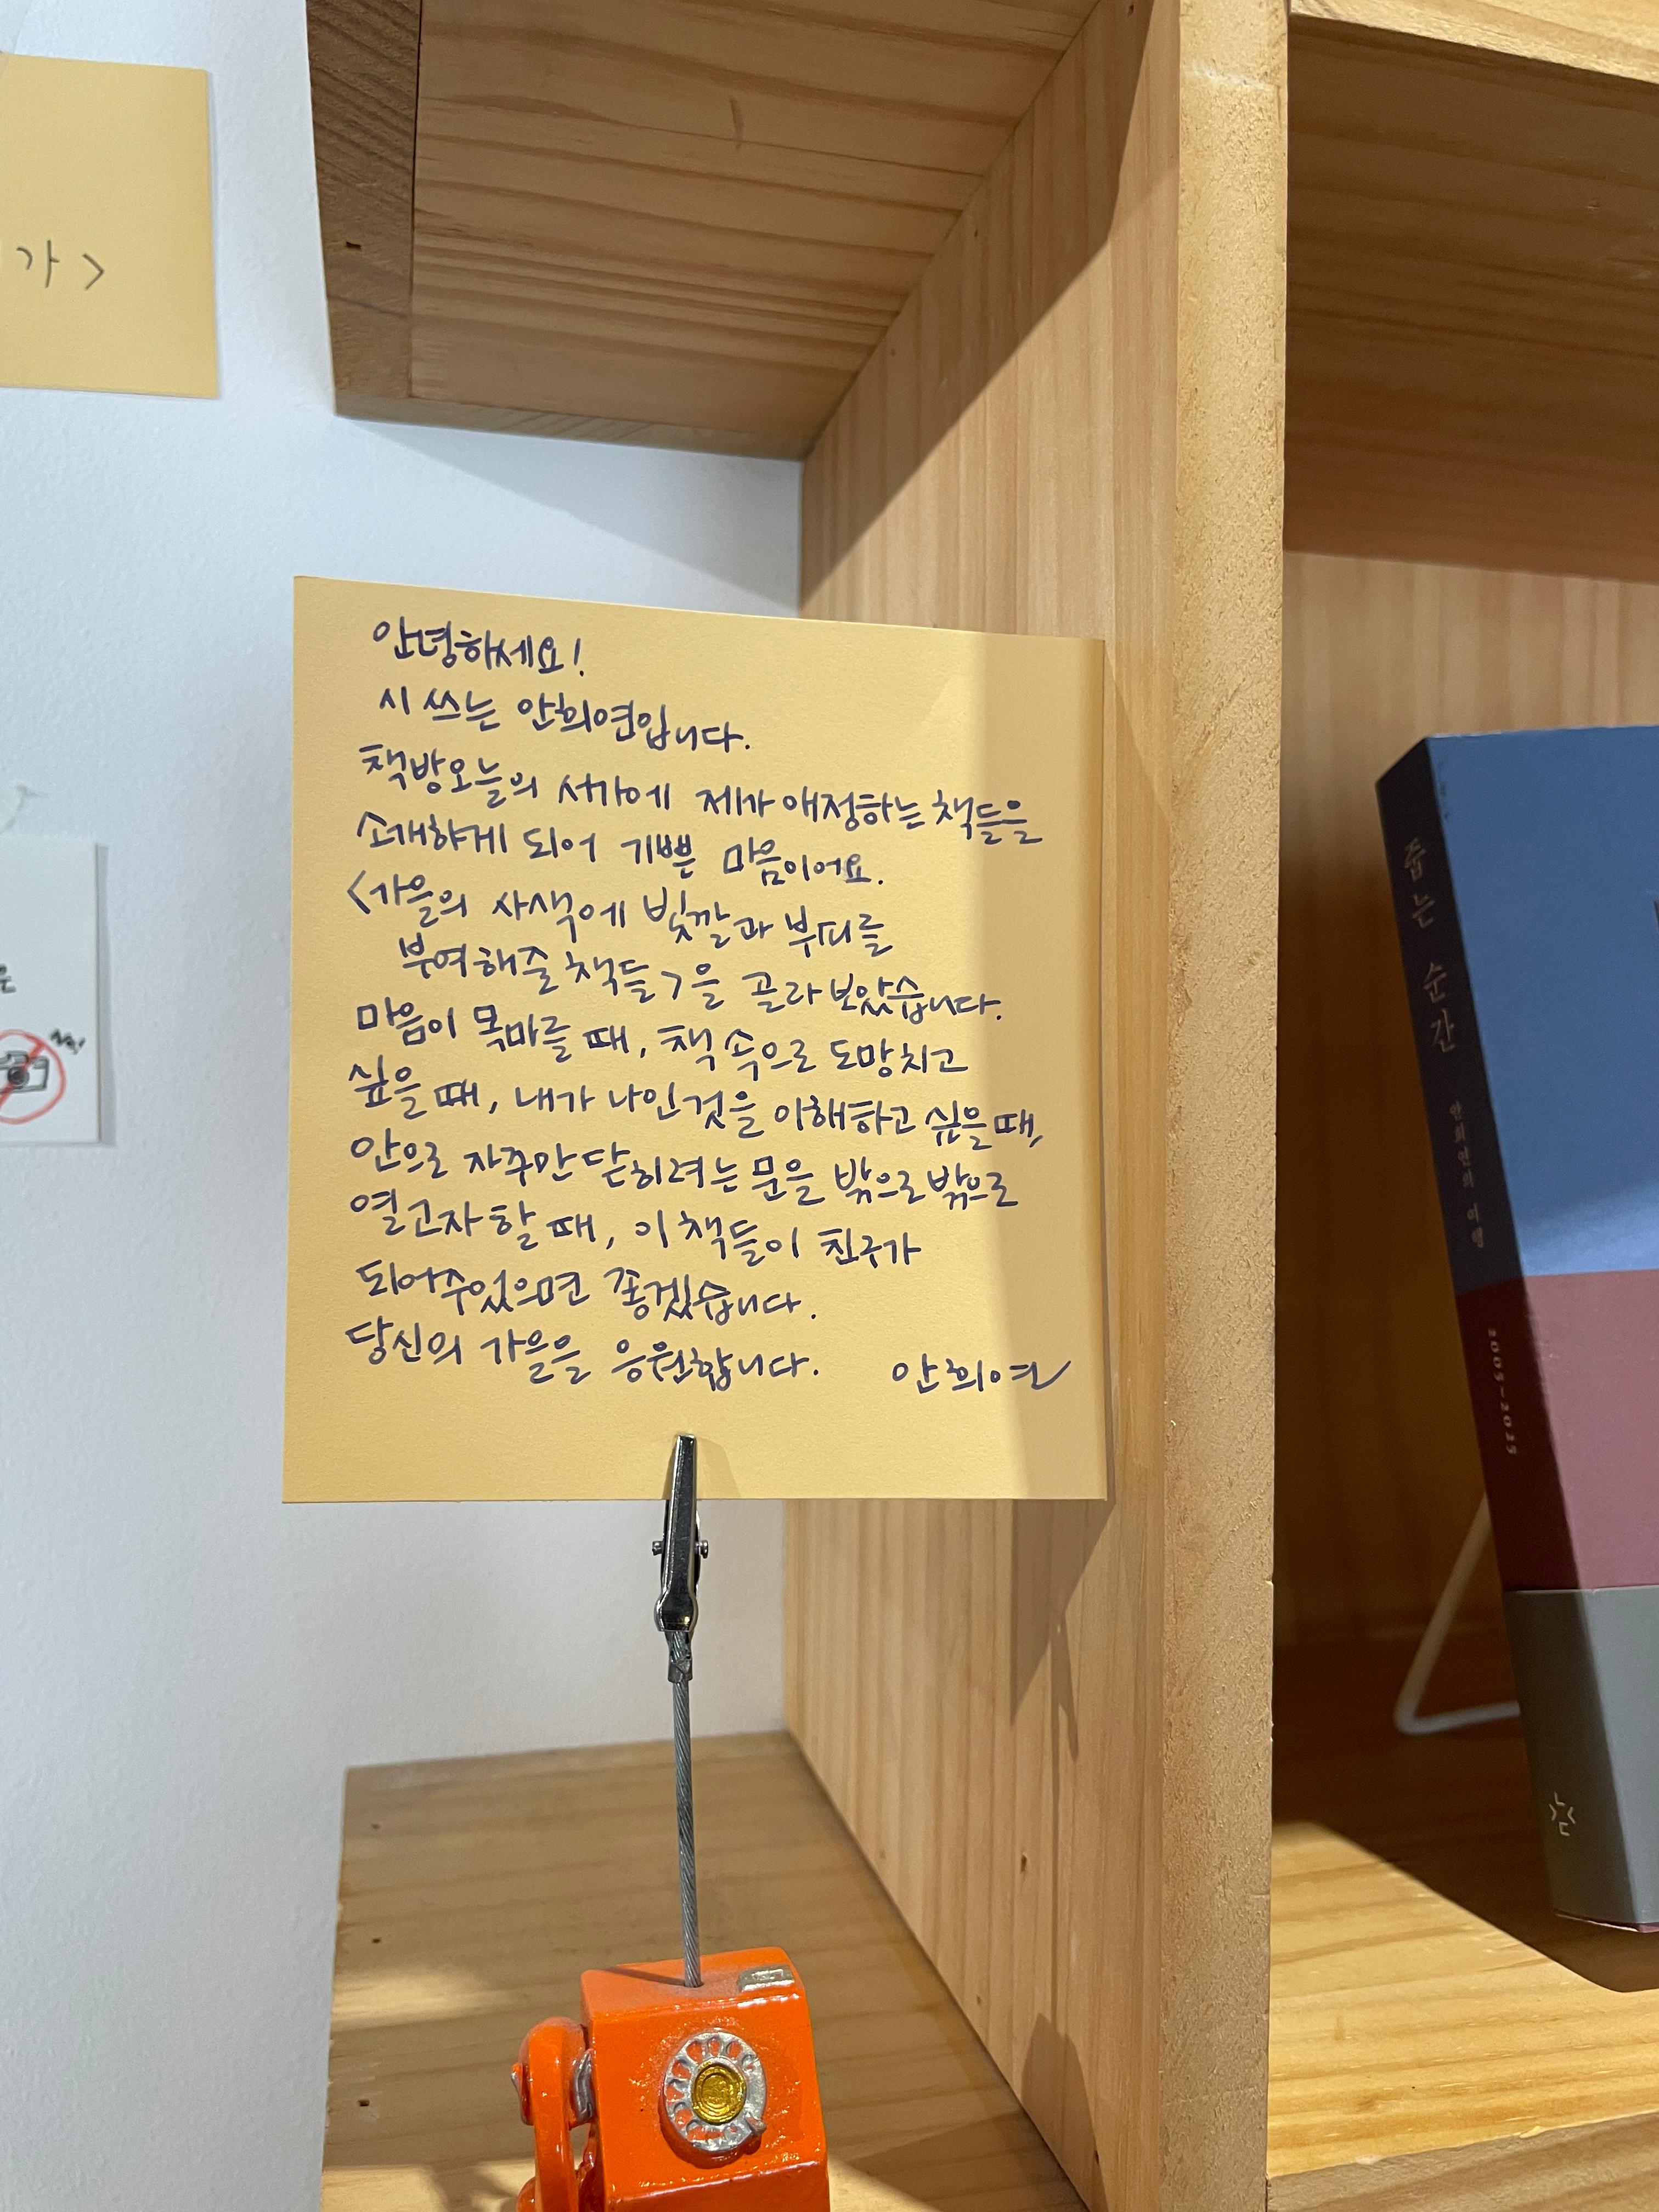 가>
안녕하세요!
시 쓰는 안희연입니다.
책방오늘의 서가에 제가 애정하는 책들을
소개하게 되어 기쁜 마음이어요.
<가을의 사색에 빛깔과 부피를
부여해줄 책들>을 골라 보았습니다.
마음이 목마를 때, 책 속으로 도망치고
싶을 때, 내가 나인 것을 이해하고 싶을 때,
안으로 자꾸만 닫히려는 문을 밖으로 밖으로
열고자 할 때, 이 책들이 친구가
되어주었으면 좋겠습니다.
당신의 가을을 응원합니다. 안희연
줍는 순간
안희연의 여행
2005-2025